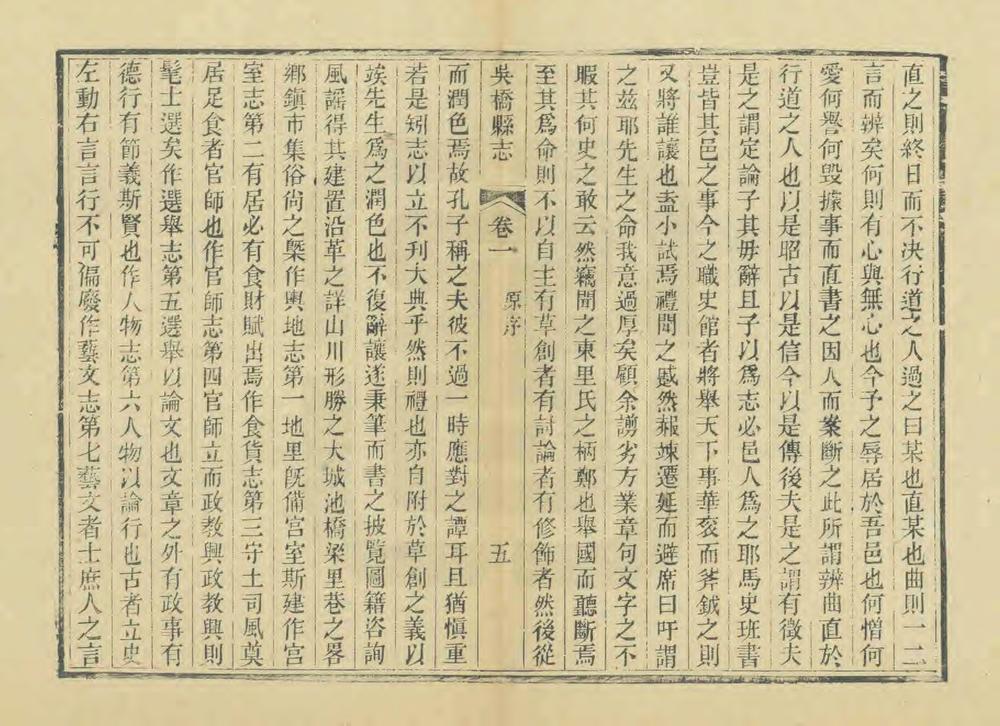 直之則終日而不決行道之人過之曰某也直某也曲則一二
言而辨矣何則有心與無心也今子之辱居於吾邑也何憎何
愛何譽何毀據事而直書之因人而案斷之此所謂辨曲直於
行道之人也以是昭古以是信今以是傳後夫是之謂有徵夫
是之謂定論子其毋辭且子以為志必邑人為之耶馬史班書
豈皆其邑之事今之職史館者將舉天下事華袞而斧鉞之則
又將誰讓也盍小試焉禮聞之慼然赧竦遷延而避席曰吁謂
之茲耶先生之命我意過厚矣顧余謭劣方業章句文字之不
暇其何史之敢云然竊聞之東里氏之柄鄭也舉國而聽斷焉
至其為命則不以自主有草創者有討論者有修飾者然後從
吳橋縣志
卷一
原序
五
而潤色焉故孔子稱之夫彼不過一時應對之譚耳且猶慎重
若是矧志以立不刊大典乎然則禮也亦自附於草創之義以
竢先生為之潤色也不復辭讓遂秉筆而書之披覽圖籍咨詢
風謠得其建置沿革之詳山川形勝之大城池橋梁里巷之畧
鄉鎮市集俗尙之槩作輿地志第一地里旣備宮室斯建作宮
室志第二有居必有食財賦出焉作食貨志第三守土司風奠
居足食者官師也作官師志第四官師立而政教興政教興則
髦士選矣作選舉志第五選舉以論文也文章之外有政事有
德行有節義斯賢也作人物志第六人物以論行也古者立史
左動右言言行不可偏廢作藝文志第七藝文者士庶人之言